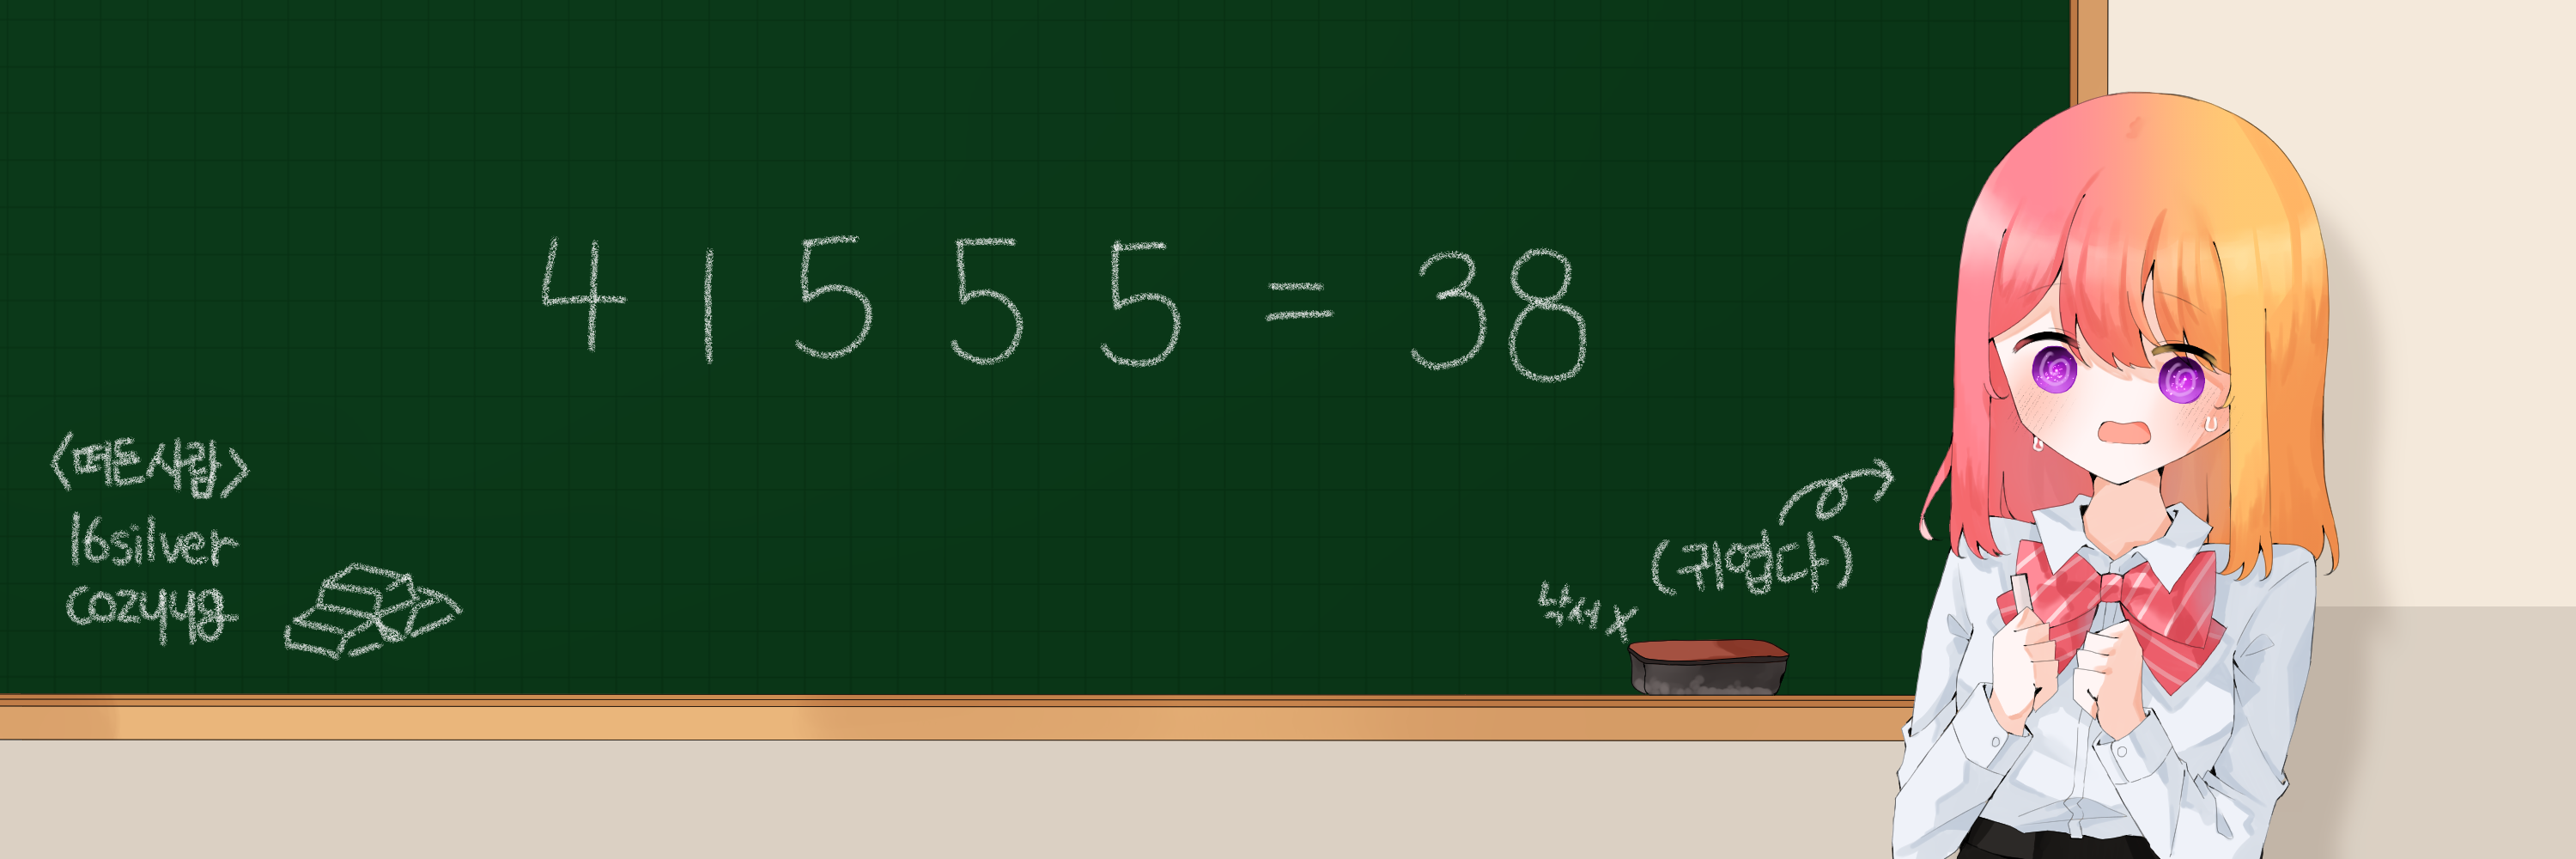 4 1 5 5 5 = 38
<떠든사람>
16silver
cozyyg
(귀엽다)
낙서 X